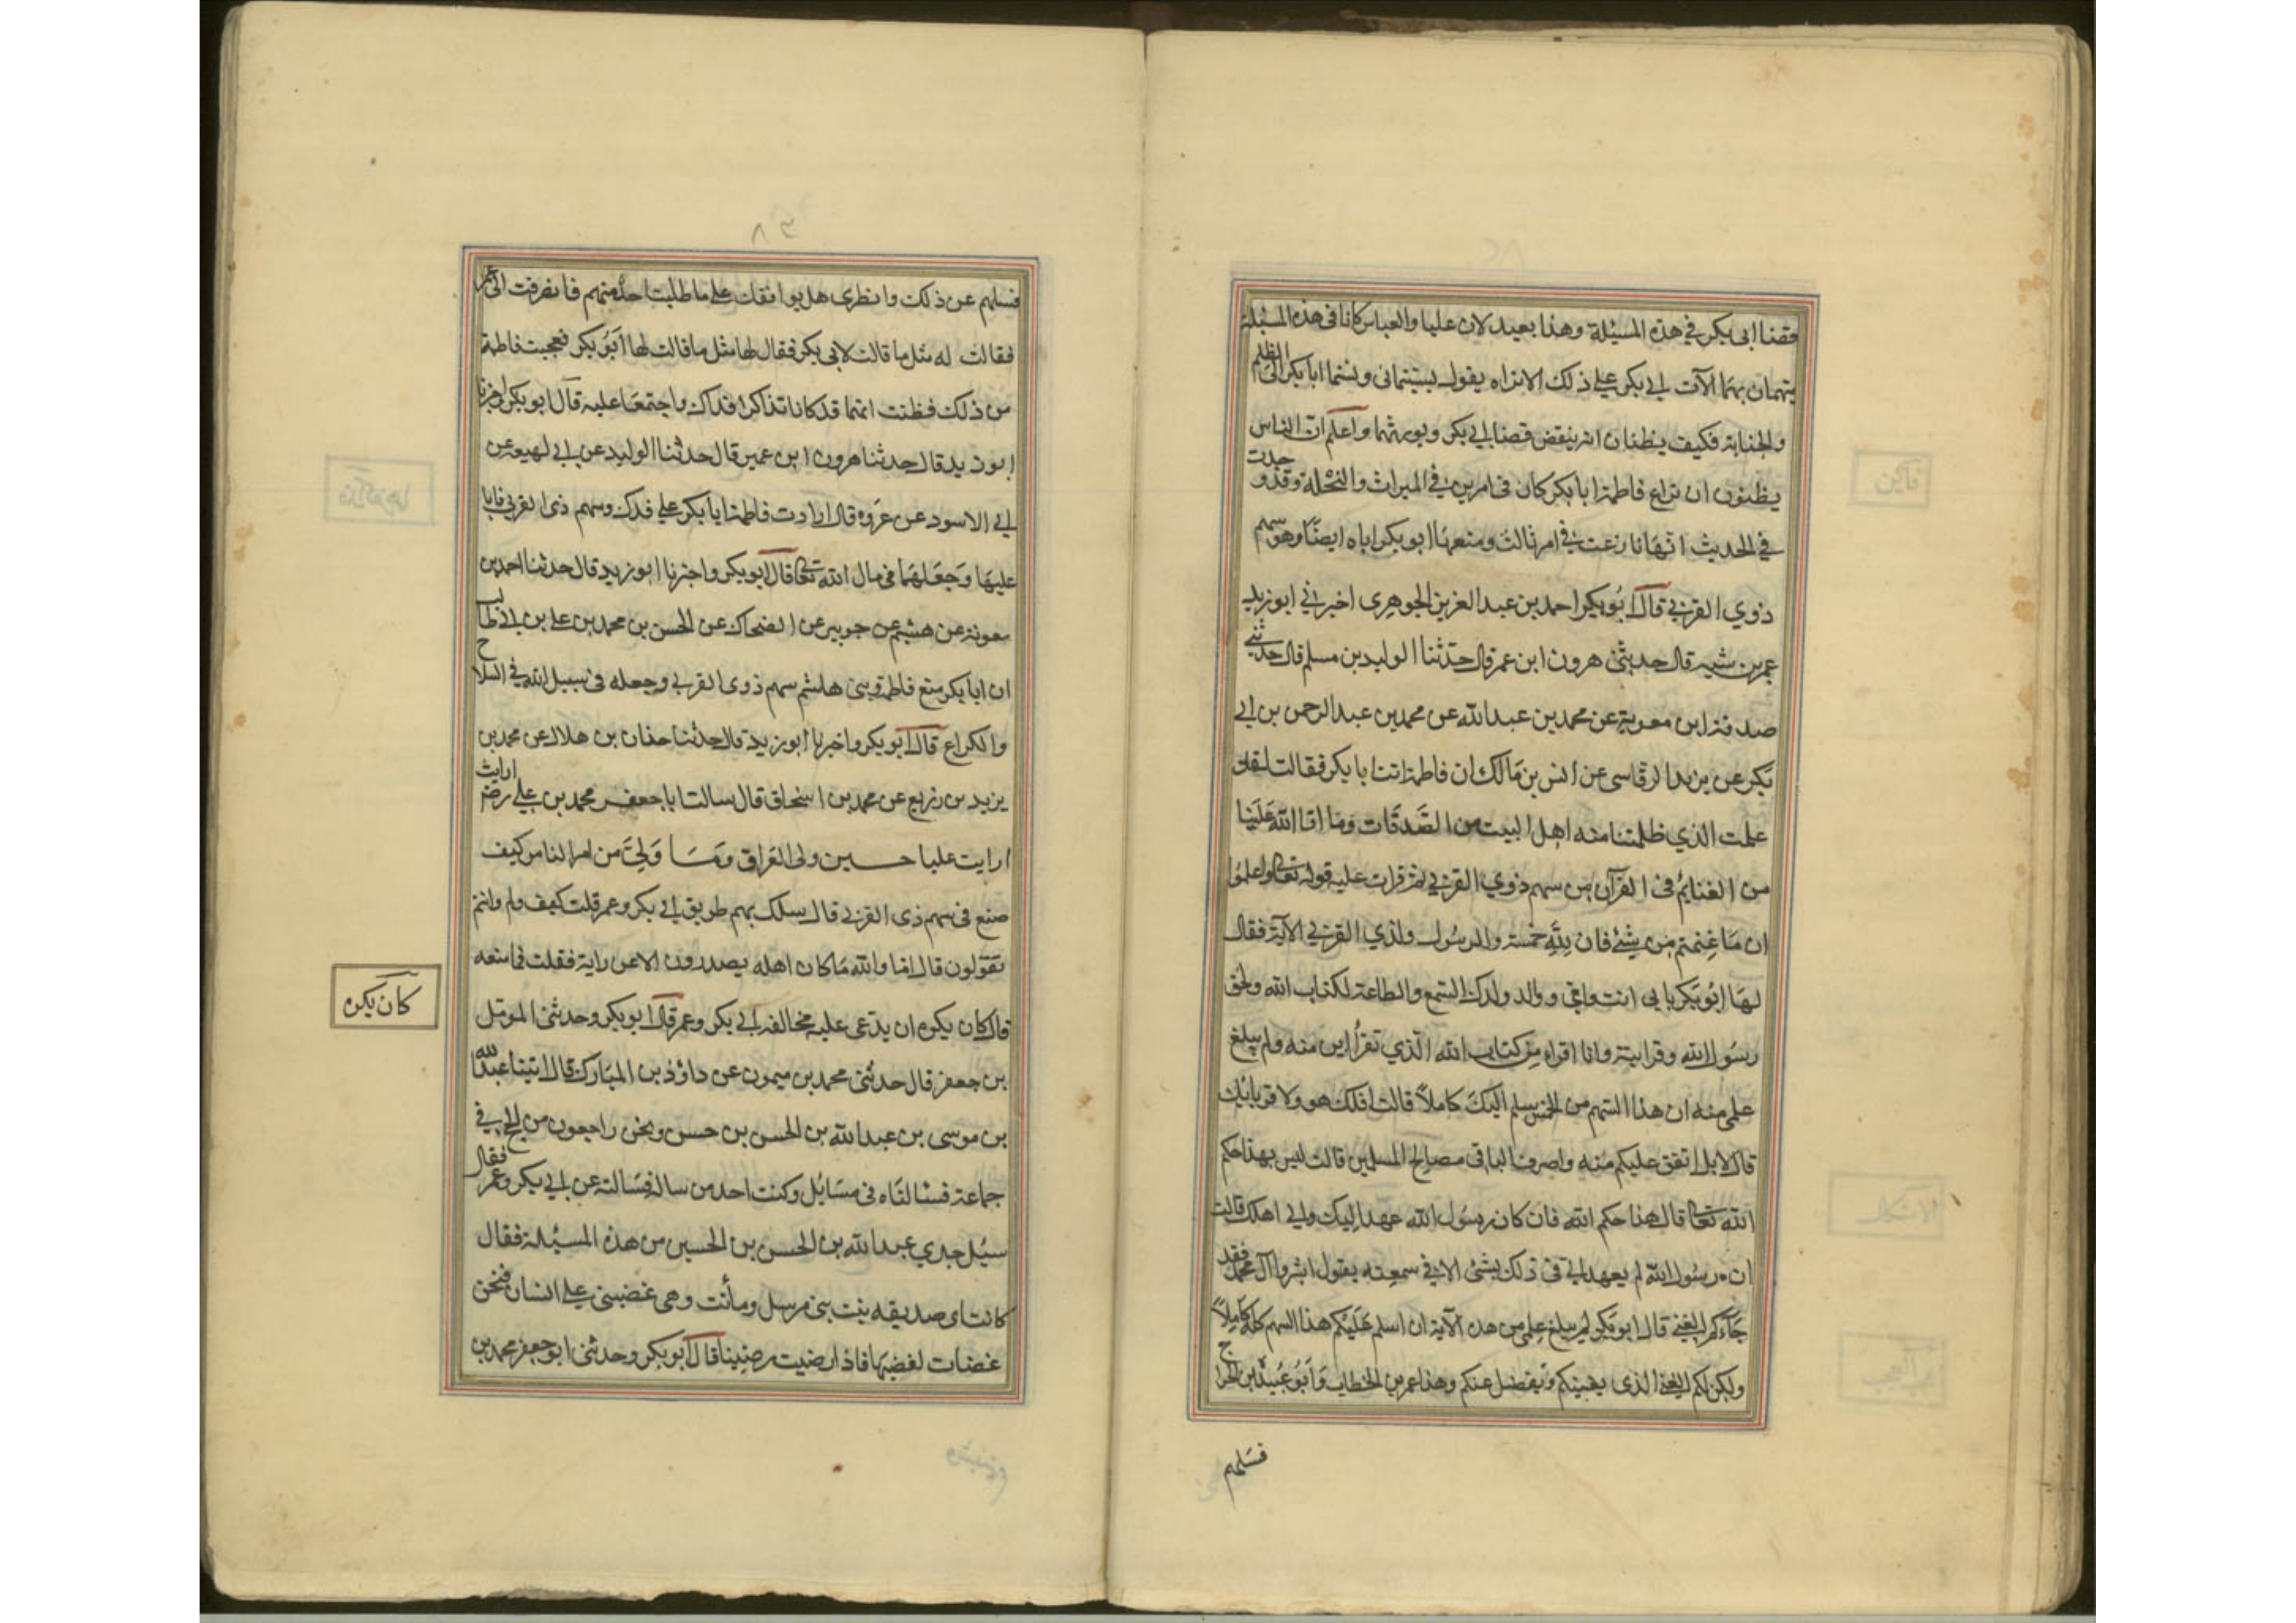 قضا ابى بكر في هذه المسيلة وهذا بعيد لان عليا والعباس كانا فى هذه المسئلة
يتهمان بهما الآت ابي بكر على ذلك الا تراه يقول ونسبتما ابا بكر الى الظلم
والخيانة فكيف يظنان انه ينقض قضا ابي بكر ويورثهما واعلم ان الناس
يظنون ان نزاع فاطمة ابا بكر كان فى امرين في الميراث والنحلة وقد وجدت
في الحديث انها نازعت في امر ثالث ومنعها ابو بكر اياه ايضا وهو سهم
ذوي القربي قال ابو بكر احمد بن عبد العزيز الجوهرى اخبرني ابو زيد
عمر بن شبه قال حدثنى هرون ابن عمر قال حدثنا الوليد بن مسلم قال حدثنى
صدقة ابن معوية عن محمد بن عبد الله عن محمد بن عبد الرحمن بن ابي
بكر عن يزيد الرقاسى عن انس بن مالك ان فاطمة اتت ابا بكر فقالت لقد
علمت الذي ظلمتنا منه اهل البيت من الصدقات وما افا الله علينا
من الغنايم فى القرآن من سهم ذوي القربي ثم قرات عليه قوله تعالى واعلموا
ان ما غنمتم من شئ فان لله خمسه وللرسول ولذي القربي الآية فقال
لها ابو بكر بابي انت وامي ووالد ولدك السمع والطاعة لكتاب الله ولحق
رسول الله وقرابته وانا اقراء من كتاب الله الذي تقرأين منه ولم يبلغ
علمى منه ان هذا السهم من الخمس يسلم اليك كاملاً قالت افلك هو ولاقربائك
قال لا بل انفق عليكم منه واصرف الباقى مصالح المسلمين قالت ليس بهذا حكم
الله تعالى قال هذا حكم الله فان كان رسول الله عهد اليك ولي اهلك قالت
ان رسول الله لم يعهد الي فى ذلك بشئ الا اني سمعته يقول ابشروا آل محمد فقد
جآءكم الغنى قال ابو بكر لم يبلغ علمى من هذه الآية ان اسلم عليكم هذا السهم كله كاملاً
ولكن لكم الغنى الذى يغنيكم ويفضل عنكم وهذا عمر بن الخطاب وابو عبيدة بن الجراح
فسلهم
فسلهم عن ذلك وانظرى هل يوافقك على ما طلبت احد منهم فانصرفت الى عمر
فقالت له مثل ما قالت لابى بكر فقال لها مثل ما قالت لها ابو بكر فعجبت فاطمة
من ذلك فظنت انهما قد كانا تذاكرا فداك واجتمعا عليه قال ابو بكر واخبرنا
ابو زيد قال حدثنا هرون ابن عمير قال حدثنا الوليد عن ابي لهيعه عن
ابي الاسود عن عروه قال ارادت فاطمة ابا بكر على فدك وسهم ذى القربي فابا
عليها وجعلهما فى مال الله تعالى قال ابو بكر واخبرنا ابو زيد قال حدثنا احمد بن
معوية عن هشيم عن جويبر عن الضحاك عن الحسن بن محمد بن على بن ابي طالب
ان ابا بكر منع فاطمة وبنى هاشم سهم ذوى القربي وجعله فى سبيل الله في السلاح
والكراع قال ابو بكر واخبرنا ابو زيد قال حدثنا حنان بن هلال عن محمد بن
يزيد بن زريع عن محمد بن اسحاق قال سالت ابا جعفر محمد بن على رضى ارايت
ارايت عليا حسين ولى العراق وما ولي من امر الناس كيف
صنع فى سهم ذى القربي قال سلك بهم طريق ابي بكر وعمر قلت كيف ولم وانتم
تقولون قال اما والله ما كان اهله يصدرون الا عن رايه فقلت فما منعه
قال كان يكره ان يدعى عليه مخالفة ابي بكر وعمر قال ابو بكر وحدثنى المومل
كان يكره
بن جعفر قال حدثنى محمد بن ميمون عن داؤد بن المبارك قال اتينا عبد الله
بن موسى بن عبد الله بن الحسن بن حسن ونحن راجعون من الحج في
جماعة فسالناه فى مسايل وكنت احد من ساله فسالته عن ابي بكر وعمر فقال
سئل جدي عبد الله بن الحسن بن الحسين من هذه المسيلة فقال
كانت اى صديقه بنت نبى مرسل وماتت وهى غضبى على انسان فنحن
غضبات لغضبها فاذا رضيت رضينا قال ابو بكر وحدثنى ابو جعفر محمد بن